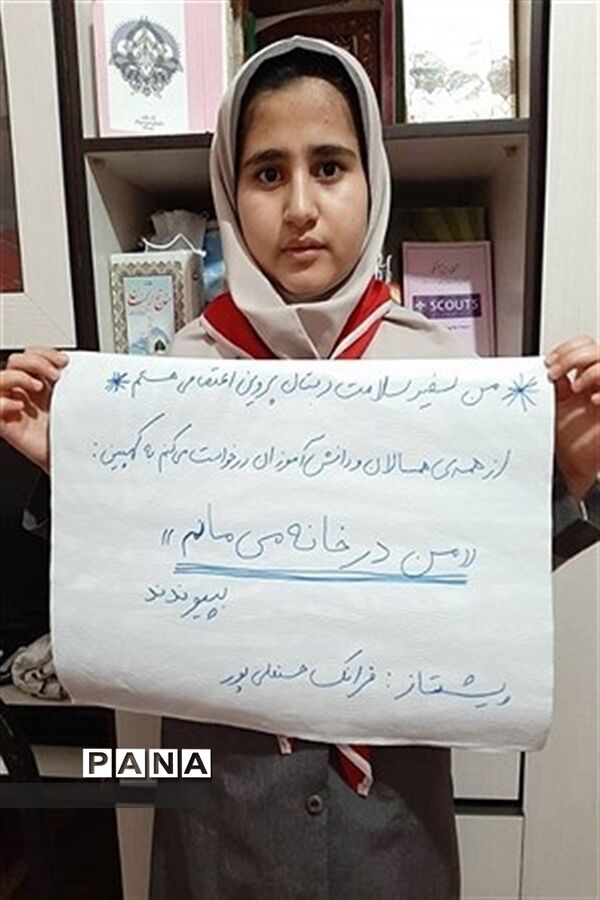 SCOUTS
* من سفیر سلامت دبستان پروین اعتصامی هستم *
از همه‌ی همسالان و دانش‌آموزان درخواست می‌کنم به کمپین:
«من در خانه می‌مانم»
بپیوندند
پیشتاز: فرانک حسنعلی پور
PANA